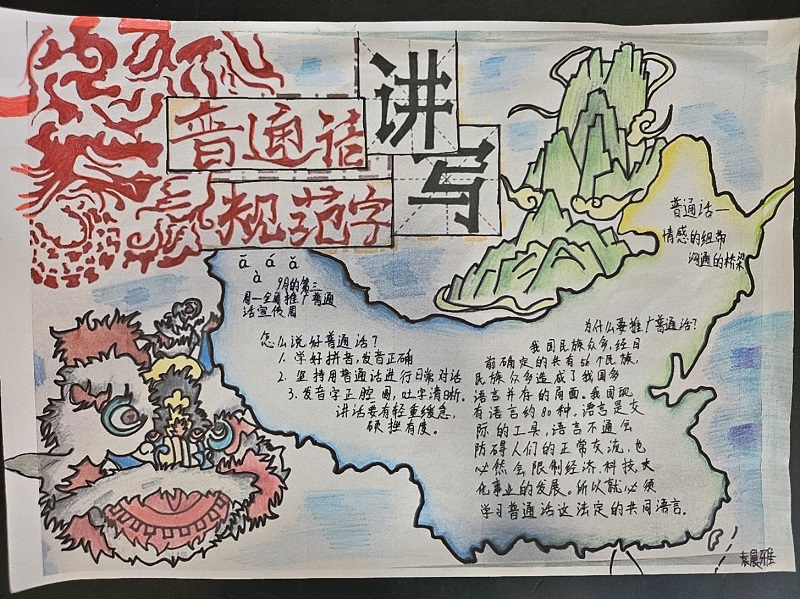 讲
普通话
写
规范字
ā á ǎ
à
9月的第三
周一全国推广普通
话宣传周
普通话一
情感的纽带
沟通的桥梁
怎么说好普通话?
1. 学好拼音,发音正确
2. 坚持用普通话进行日常对话
3. 发音字正腔圆,吐字清晰。
讲话要有轻重缓急,
顿挫有度。
为什么要推广普通话?
我国民族众多,经目
前确定的共有56个民族,
民族众多造成了我国多
语言并存的局面。我国现
有语言约80种,语言是交
际的工具,语言不通会
防碍人们的正常交流,也
必然会限制经济、科技文
化事业的发展。所以就必须
学习普通话这法定的共同语言。
袁晨雅